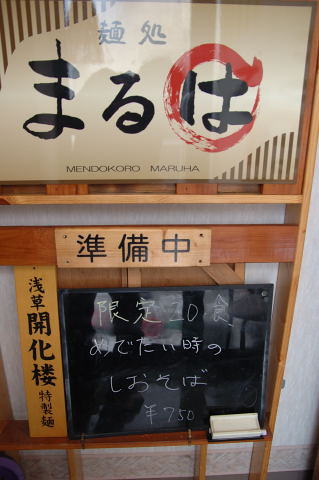 麺処
まるは
MENDOKORO MARUHA
準備中
浅草
開化楼
特製麺
限定20食
めでたい時の
しおそば
¥750